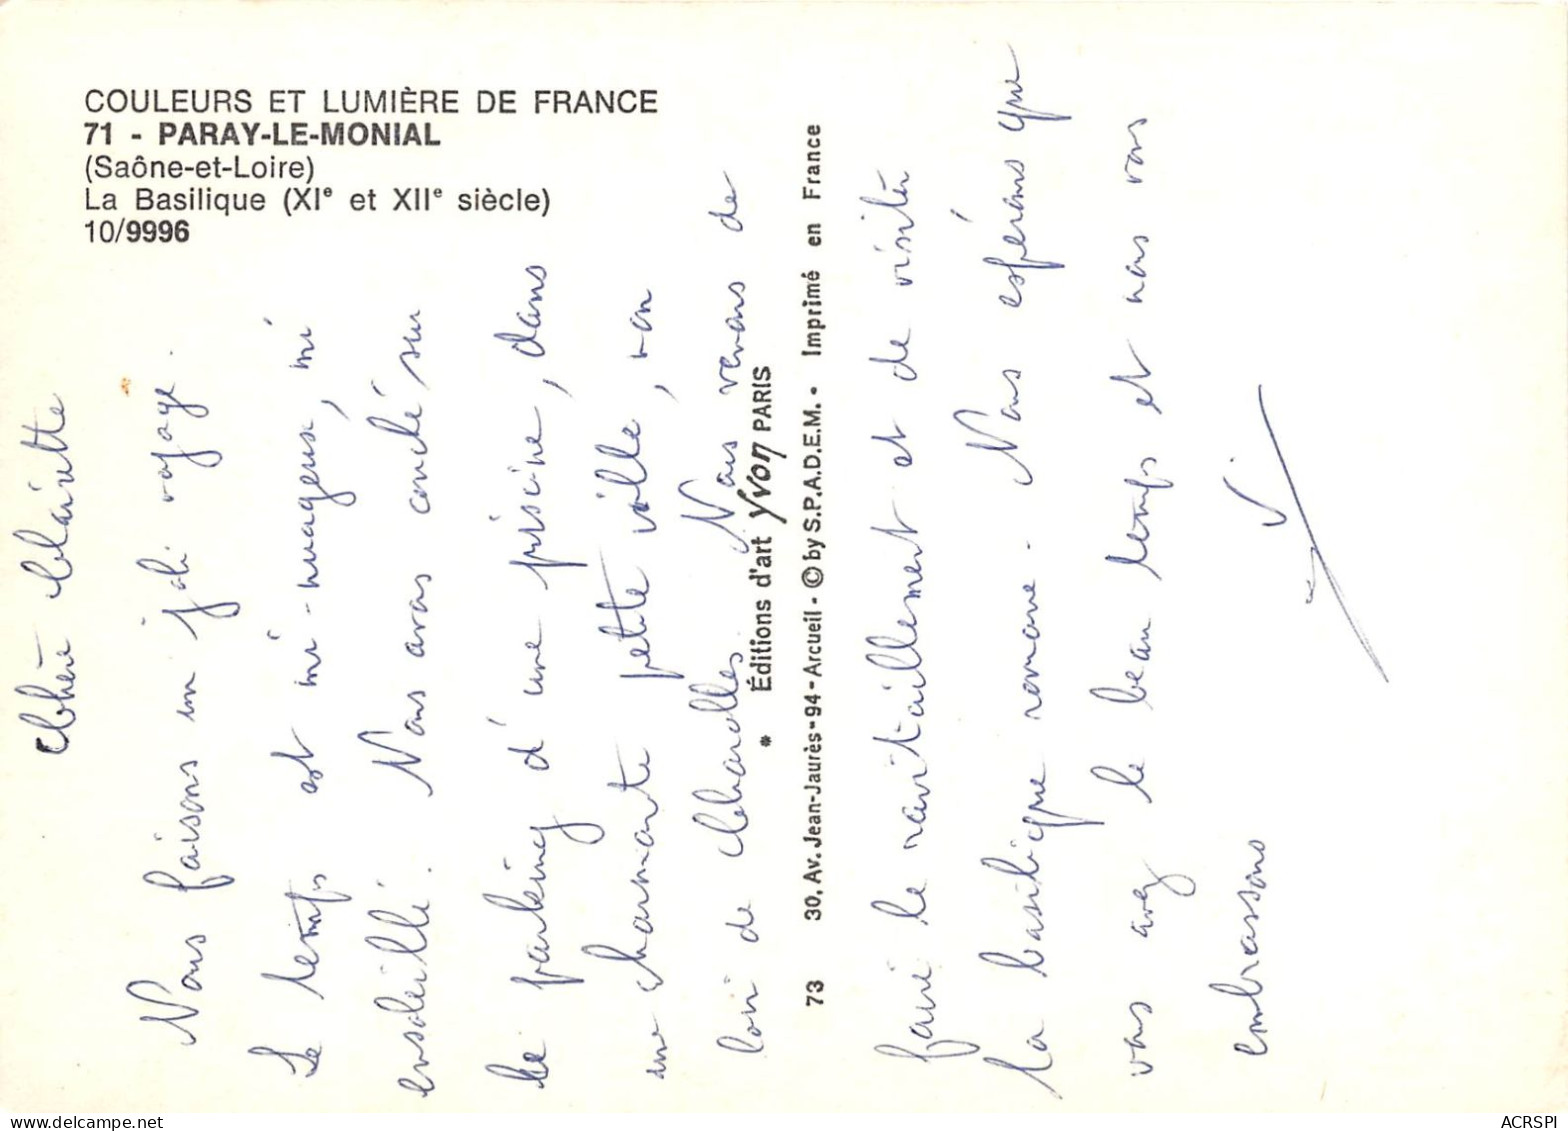 COULEURS ET LUMIÈRE DE FRANCE
71 - PARAY-LE-MONIAL
(Saône-et-Loire)
La Basilique (XIe et XIIe siècle)
10/9996
Chère Clairette
Nous faisons un joli voyage.
Le temps est mi-nuageux, mi
ensoleillé. Nous avons couché sur
le parking d'une piscine, dans
une charmante petite ville, non
loin de Charolles. Nous venons de
* Éditions d'art Yvon PARIS
73 30, Av. Jean-Jaurès - 94 - Arcueil - © by S.P.A.D.E.M. - Imprimé en France
faire le ravitaillement et de visiter
la basilique romane. Nous espérons que
vous avez le beau temps et nous vous
embrassons
ACRSPI